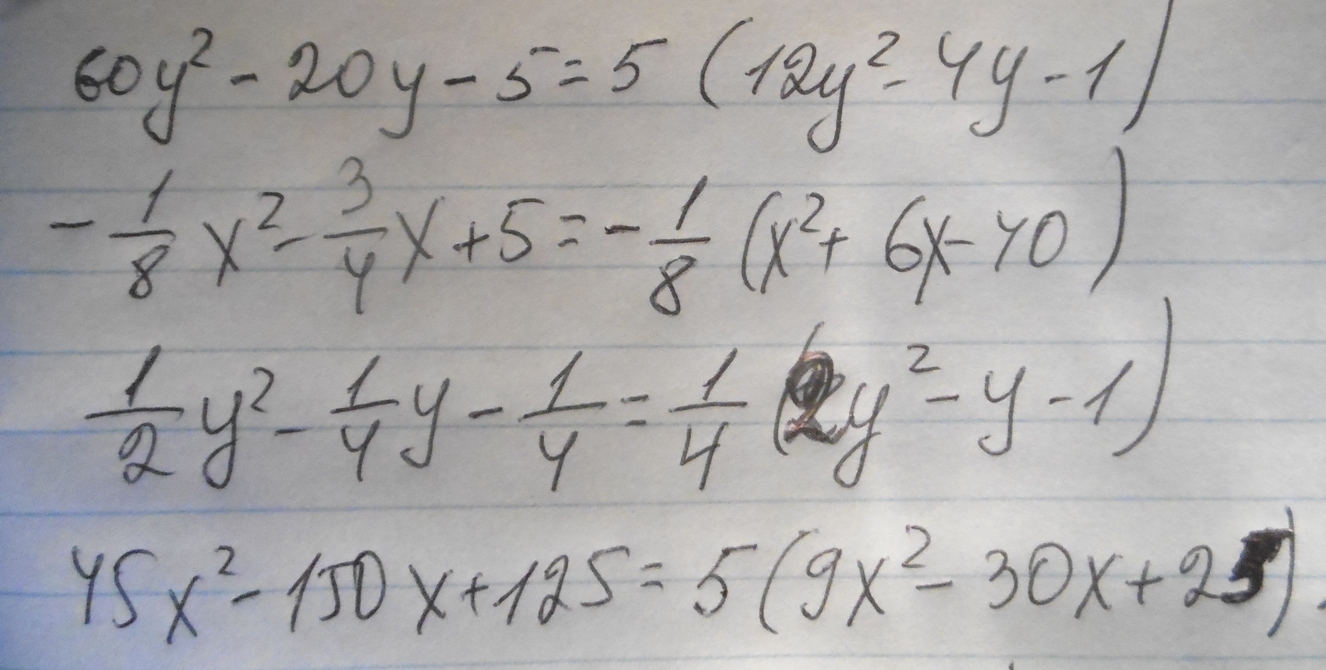 60y² - 20y - 5 = 5 (12y² - 4y - 1)
- 1/8 x² - 3/4 x + 5 = - 1/8 (x² + 6x - 40)
1/2 y² - 1/4 y - 1/4 = 1/4 (2y² - y - 1)
45x² - 150x + 125 = 5 (9x² - 30x + 25).